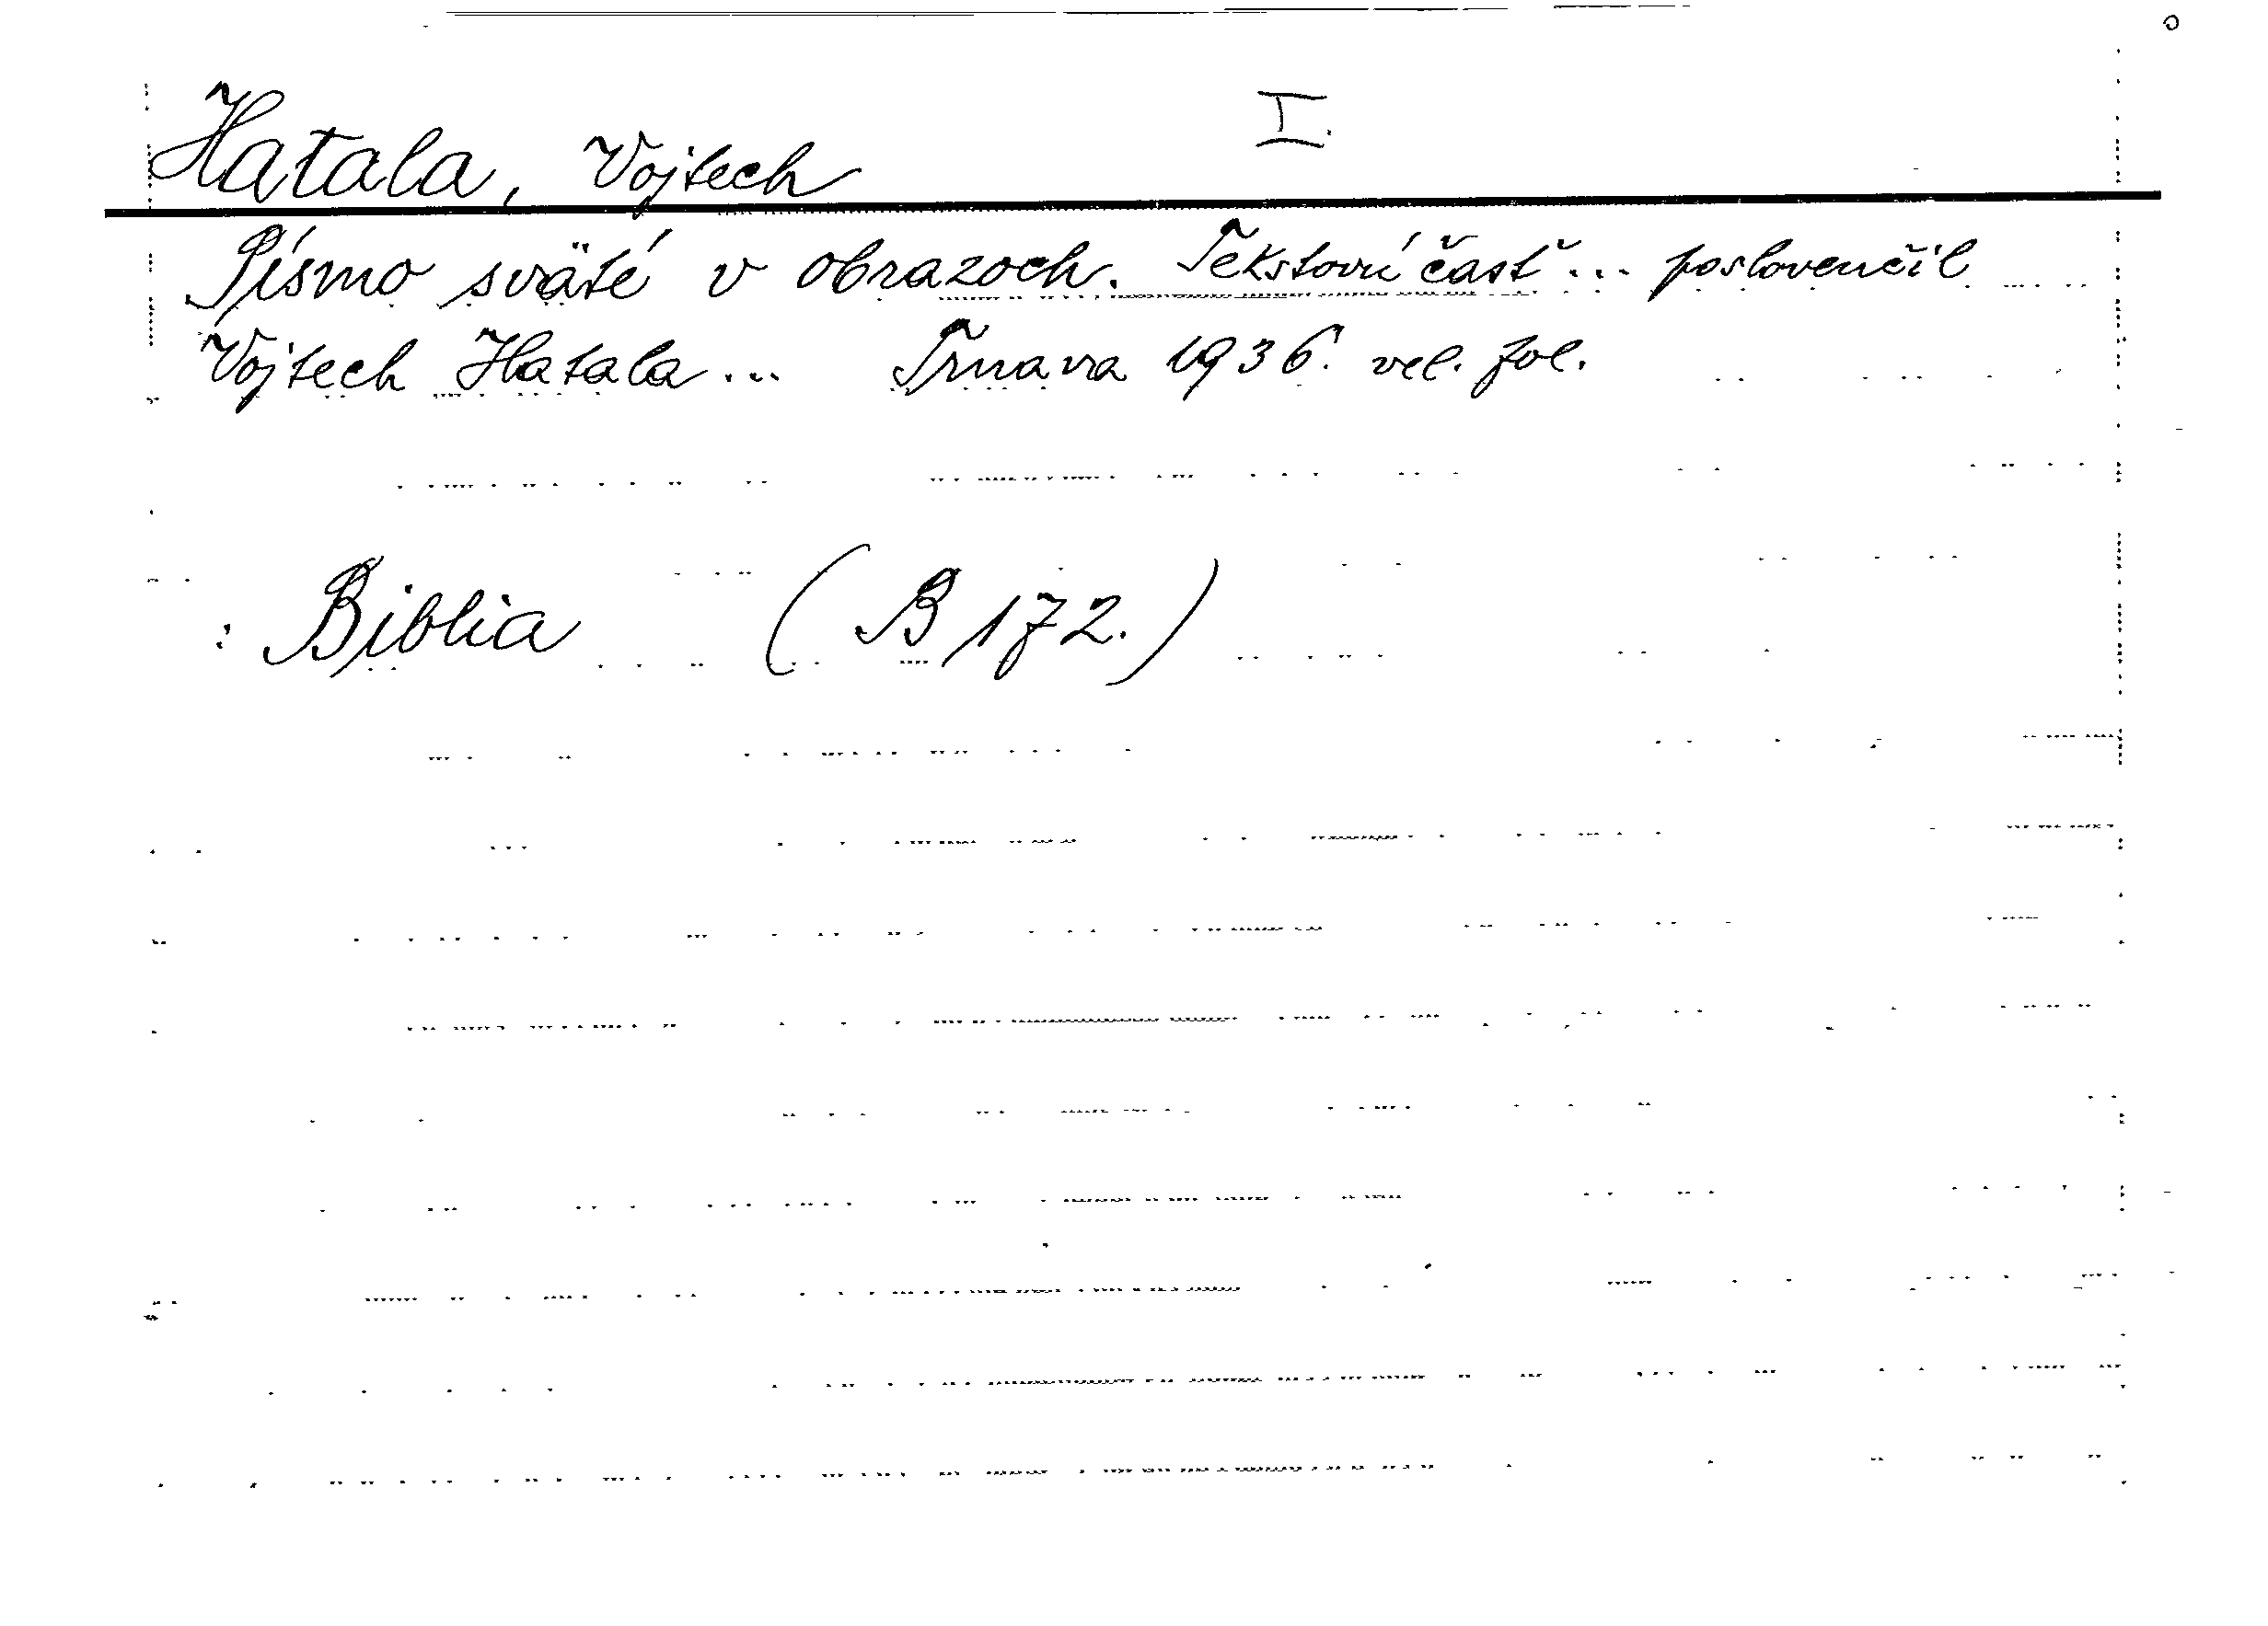 Hatala, Vojtech I.
Písmo sväté v obrazoch. Tekstovú časť ... poslovenčil
Vojtech Hatala ... Trnava 1936. vel. fol.
: Biblia (B 172.)